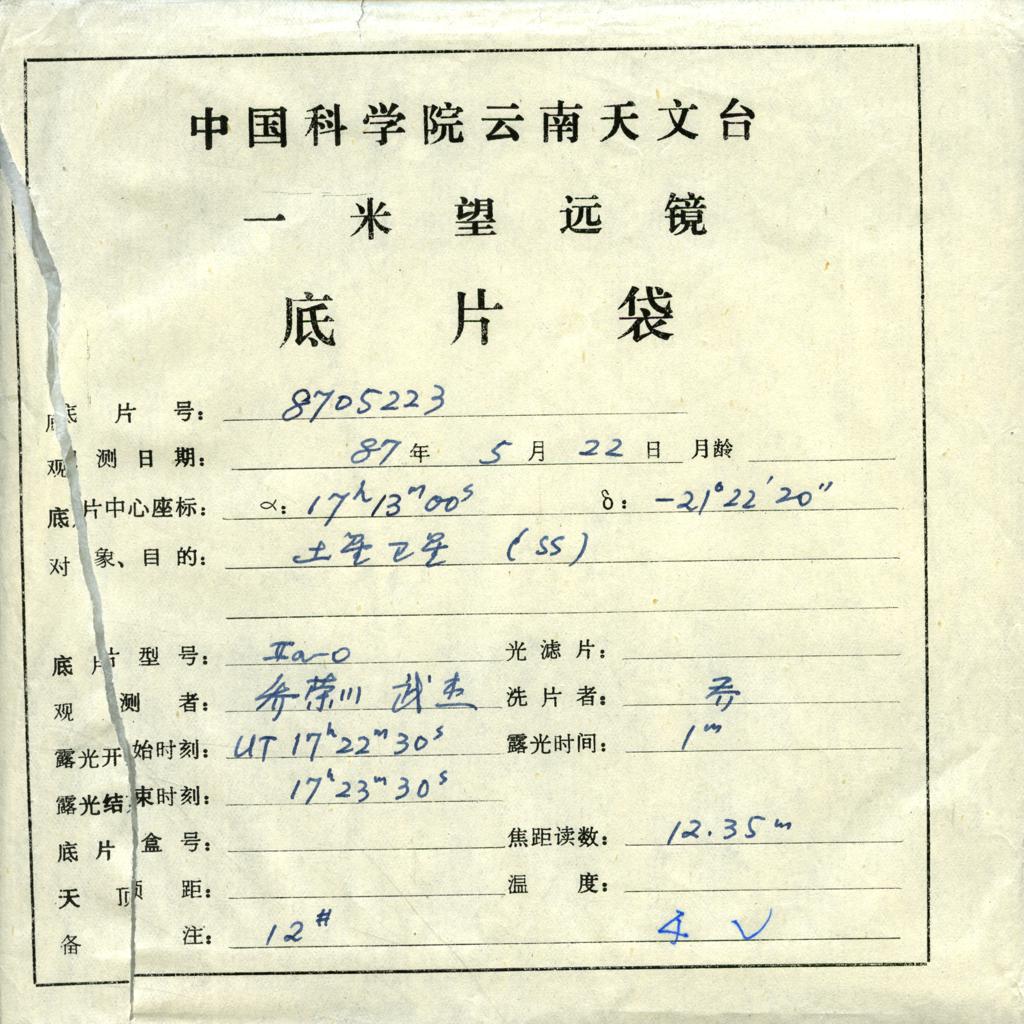 中国科学院云南天文台
一米望远镜
底片袋
底片号: 8705223
观测日期: 87年 5月 22日 月龄
底片中心座标: α: 17ʰ13ᵐ00ˢ δ: -21°22′20″
对象、目的: 土星卫星 (SS)
底片型号: IIa-O 光滤片:
观测者: 乔荣川 武杰 洗片者: 乔
露光开始时刻: UT 17ʰ22ᵐ30ˢ 露光时间: 1ᵐ
露光结束时刻: 17ʰ23ᵐ30ˢ
底片盒号: 焦距读数: 12.35ᵐ
天顶距: 温度:
备注: 12# √